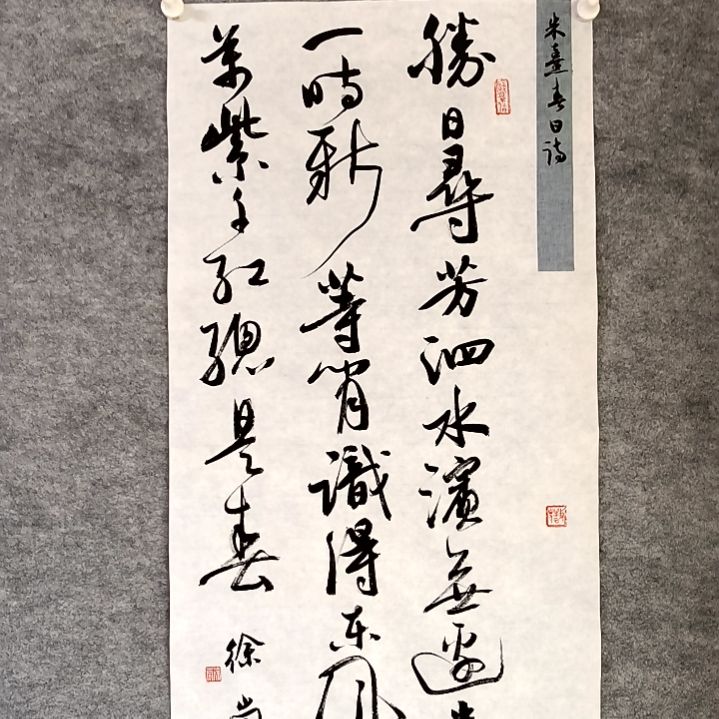 朱熹春日诗
勝日尋芳泗水濱無邊
一時新等閒識得東風
萬紫千紅總是春
徐